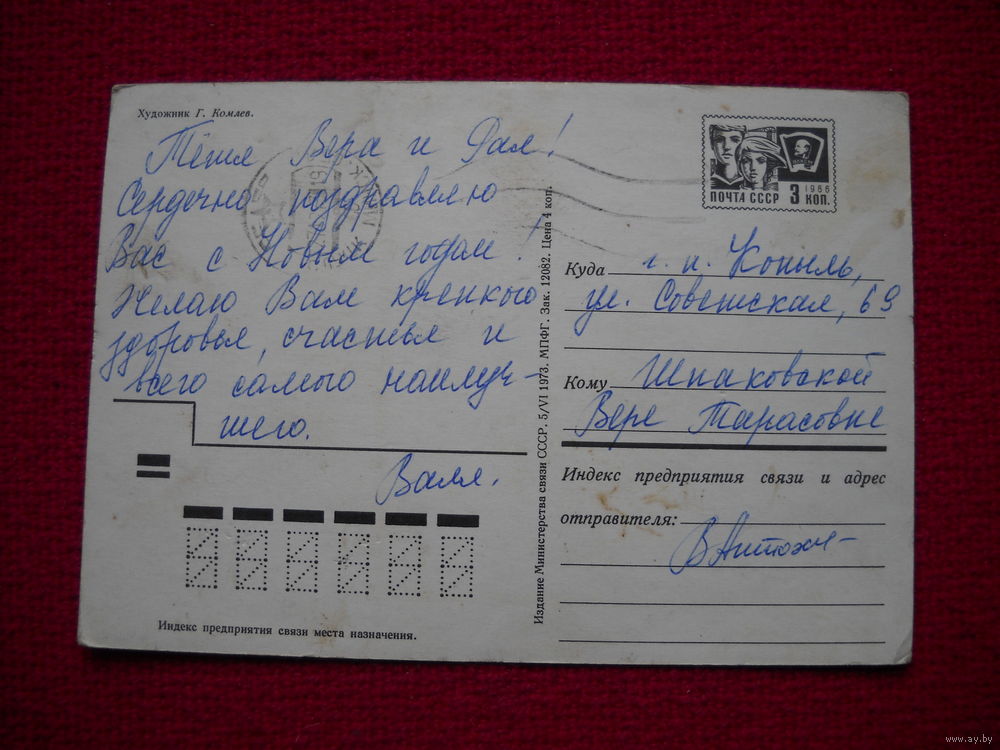 Художник Г. Комлев.
Тётя Вера и Рая!
Сердечно поздравляю
Вас с Новым годом!
Желаю Вам крепкого
здоровья, счастья и
всего самого наилуч-
шего.
Валя.
Индекс предприятия связи места назначения.
Издание Министерства связи СССР. 5/VI 1973. МПФГ. Зак. 12082. Цена 4 коп.
1966
ПОЧТА СССР 3 КОП.
Куда г. п. Копыль,
ул. Советская, 69
Кому Шпаковской
Вере Тарасовне
Индекс предприятия связи и адрес
отправителя:
www.ay.by